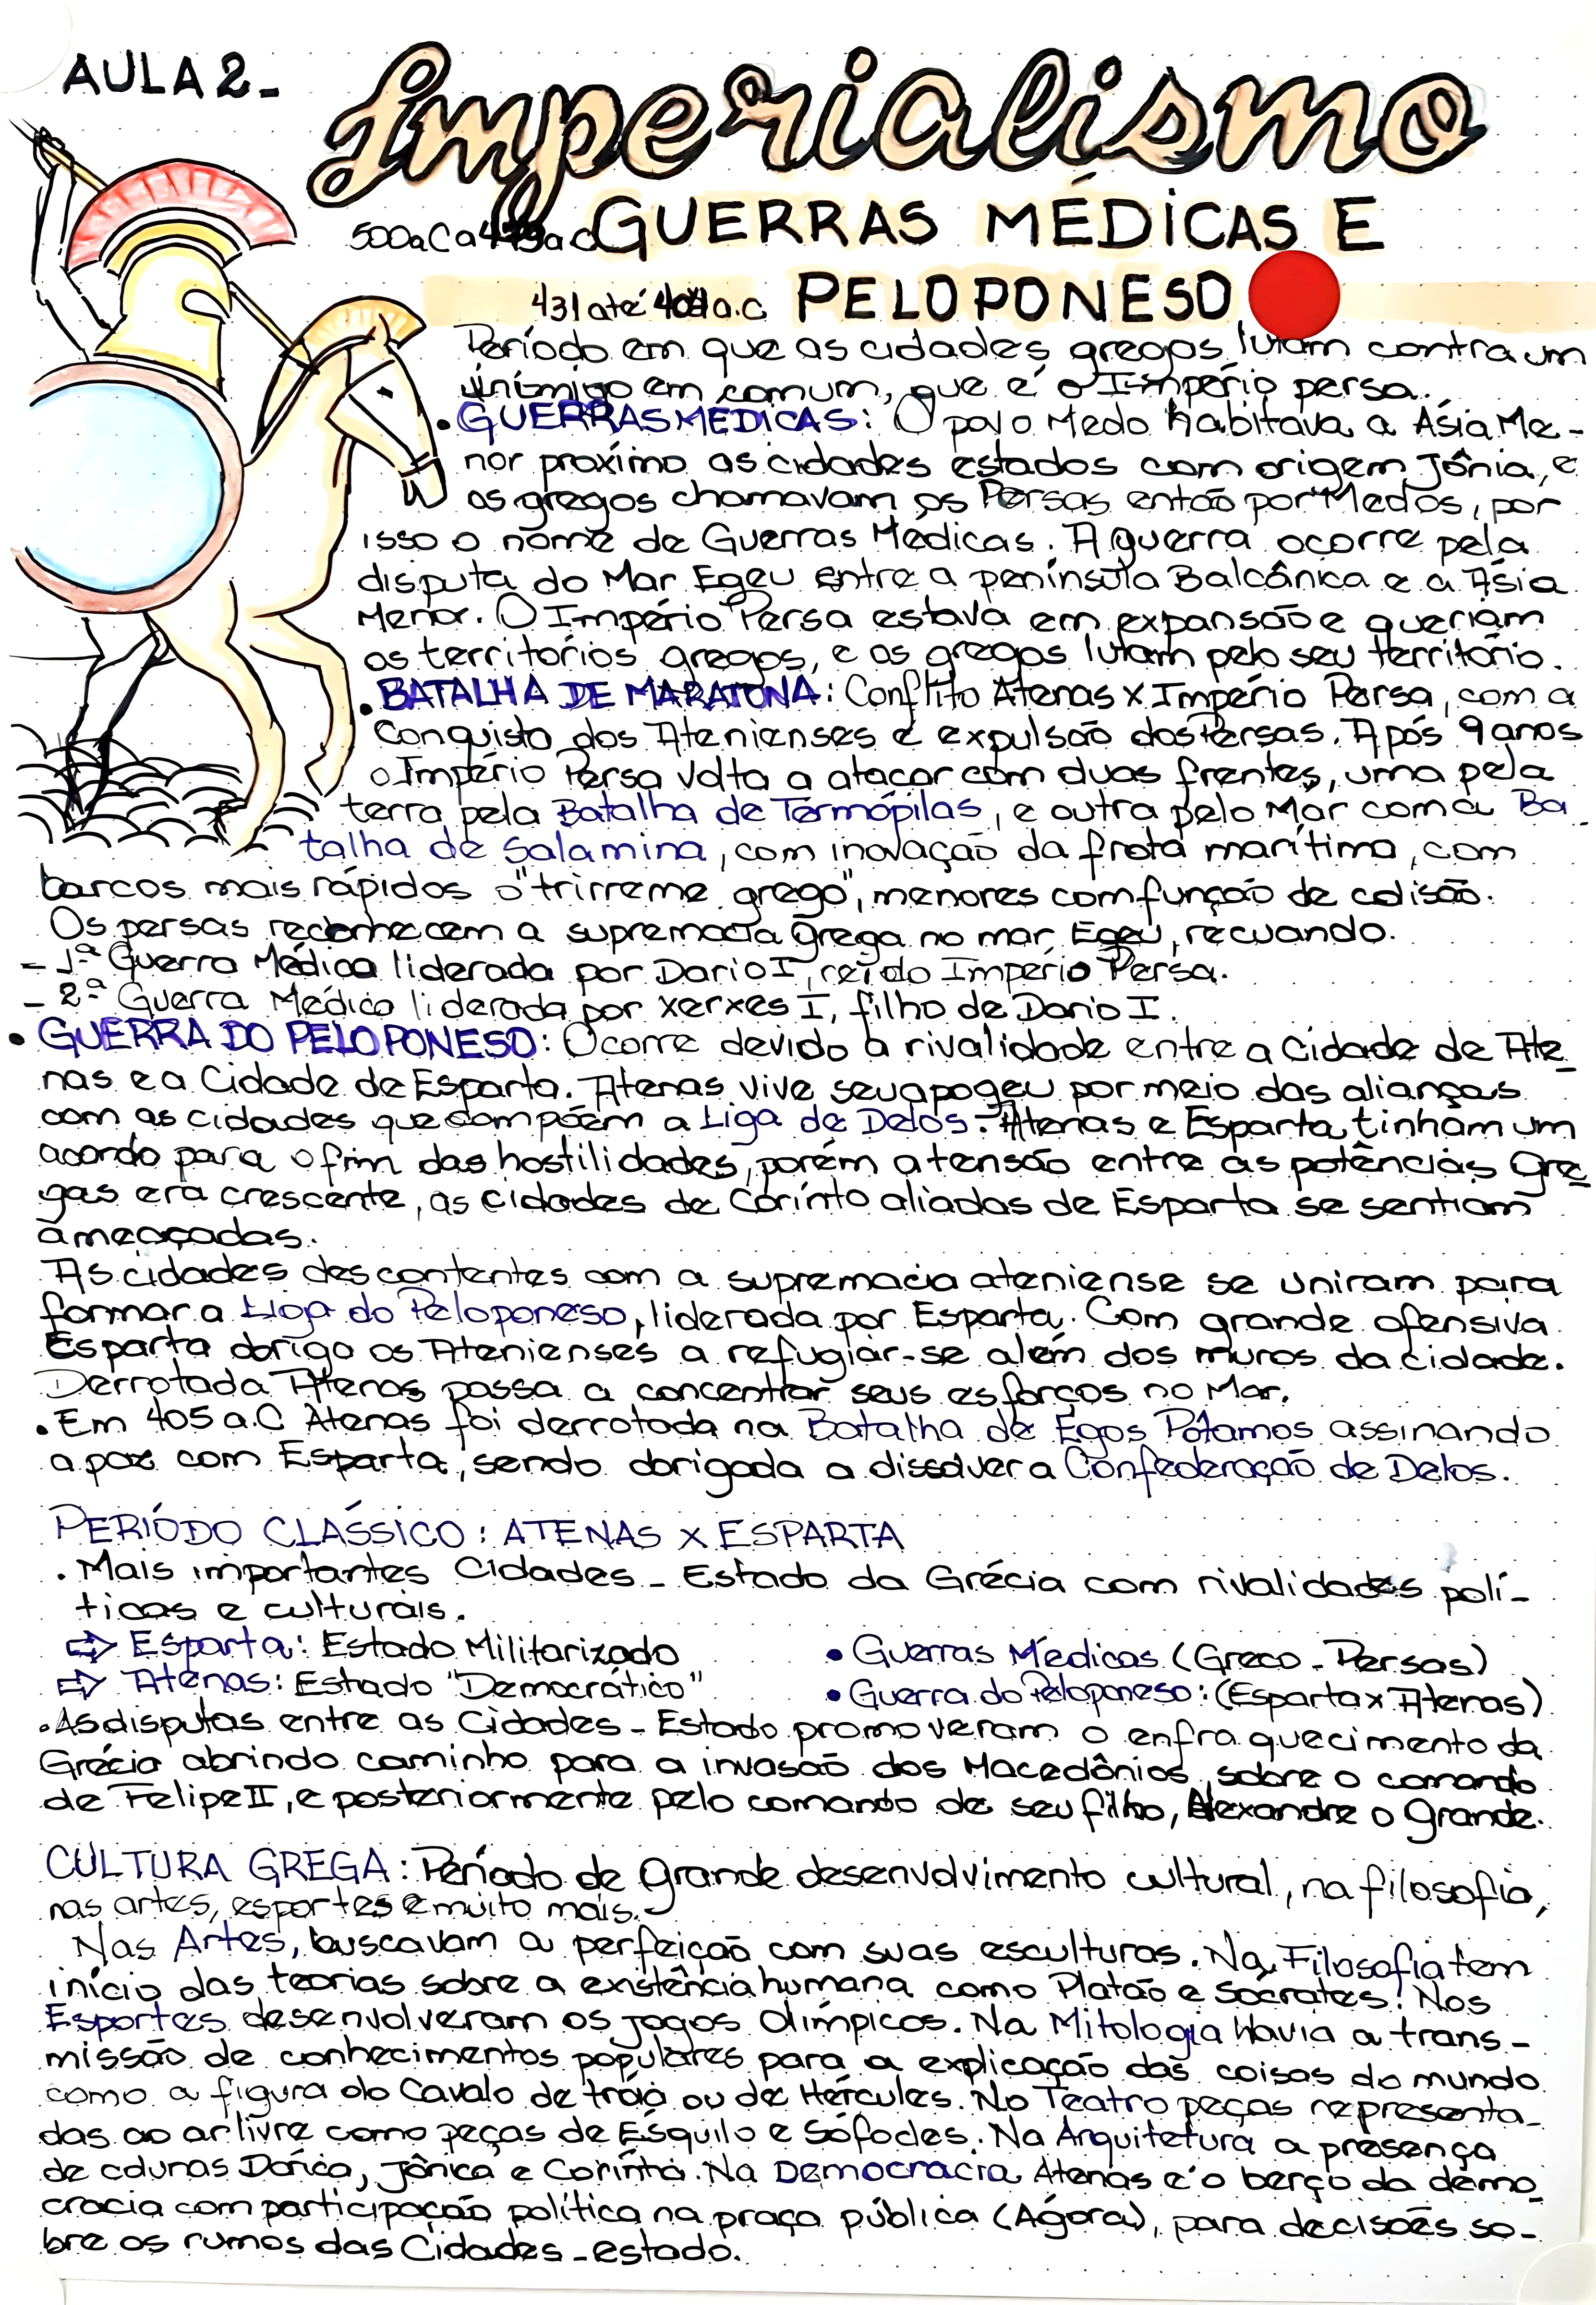 AULA 2-
Imperialismo
500a.C a 449a.C GUERRAS MÉDICAS E
431 até 404 a.C PELOPONESO
Período em que as cidades gregas lutam contra um
inimigo em comum, que é o Império persa.
• GUERRAS MÉDICAS: O povo Medo habitava a Ásia Me-
nor proximo as cidades estados com origem Jônia, e
os gregos chamavam os Persas então por "Medos, por
isso o nome de Guerras Médicas. A guerra ocorre pela
disputa do Mar Egeu entre a península Balcânica e a Ásia
Menor. O Império Persa estava em expansão e queriam
os territorios gregos, e os gregos lutam pelo seu território.
• BATALHA DE MARATONA: Conflito Atenas x Império Persa, com a
Conquista dos Atenienses e expulsão dos Persas. Após 9 anos
o Império Persa volta a atacar com duas frentes, uma pela
terra pela Batalha de Termópilas, e outra pelo Mar com a Ba
talha de Salamina, com inovação da frota marítima, com
barcos mais rápidos o "trirreme grego", menores com função de colisão.
Os persas reconhecem a supremacia grega no mar Egeu, recuando.
- 1ª Guerra Médica liderada por Dario I, rei do Império Persa.
- 2ª Guerra Médica liderada por Xerxes I, filho de Dario I.
• GUERRA DO PELOPONESO: Ocorre devido a rivalidade entre a Cidade de Ate
nas e a Cidade de Esparta. Atenas vive seu apogeu por meio das alianças
com as cidades que compõem a Liga de Delos. Atenas e Esparta tinham um
acordo para o fim das hostilidades, porém a tensão entre as potências Gre
gas era crescente, as cidades de Corinto aliadas de Esparta se sentiam
ameaçadas.
As cidades descontentes com a supremacia ateniense se uniram para
formar a Liga do Peloponeso, liderada por Esparta. Com grande ofensiva
Esparta obriga os Atenienses a refugiar-se além dos muros da cidade.
Derrotada Atenas passa a concentrar seus esforços no Mar.
• Em 405 a.C Atenas foi derrotada na Batalha de Egos Pótamos assinando
a paz com Esparta, sendo obrigada a dissolver a Confederação de Delos.
PERÍODO CLÁSSICO: ATENAS X ESPARTA
. Mais importantes Cidades-Estado da Grécia com rivalidades polí-
ticas e culturais.
⇨ Esparta: Estado Militarizado
⇨ Atenas: Estado "Democrático"
• Guerras Médicas (Greco-Persas)
• Guerra do Peloponeso: (Esparta x Atenas)
• As disputas entre as Cidades-Estado promoveram o enfraquecimento da
Grécia abrindo caminho para a invasão dos Macedônios, sobre o comando
de Felipe II, e posteriormente pelo comando de seu filho, Alexandre o Grande.
CULTURA GREGA: Período de grande desenvolvimento cultural, na filosofia,
nas artes, esportes e muito mais.
Nas Artes, buscavam a perfeição com suas esculturas. Na Filosofia tem
início das teorias sobre a existência humana como Platão e Socrates. Nos
Esportes desenvolveram os jogos Olímpicos. Na Mitologia havia a trans-
missão de conhecimentos populares para a explicação das coisas do mundo
como a figura do Cavalo de tróia ou de Hércules. No Teatro peças representa-
das ao ar livre como peças de Ésquilo e Sófocles. Na Arquitetura a presença
de colunas Dórica, Jônica e Corínta. Na Democracia Atenas é o berço da demo
cracia com participação política na praça pública (Ágora), para decisões so-
bre os rumos das Cidades-estado.